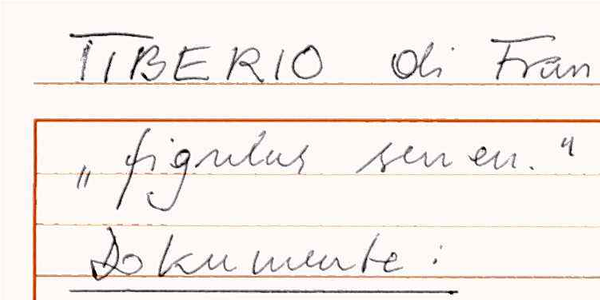 TIBERIO di Fran
„figulus senen."
Dokumente: